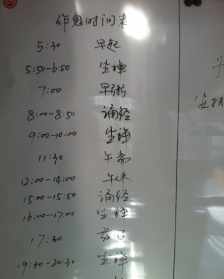 作息时间表
5:30 早起
5:50-6:50 坐禅
7:00 早斋
8:00-8:50 诵经
9:00-10:00 坐禅
11:30 午斋
12:00-14:00 午休
15:00-15:50 诵经
16:00-17:00 坐禅
17:30
19:30-20:30 坐禅